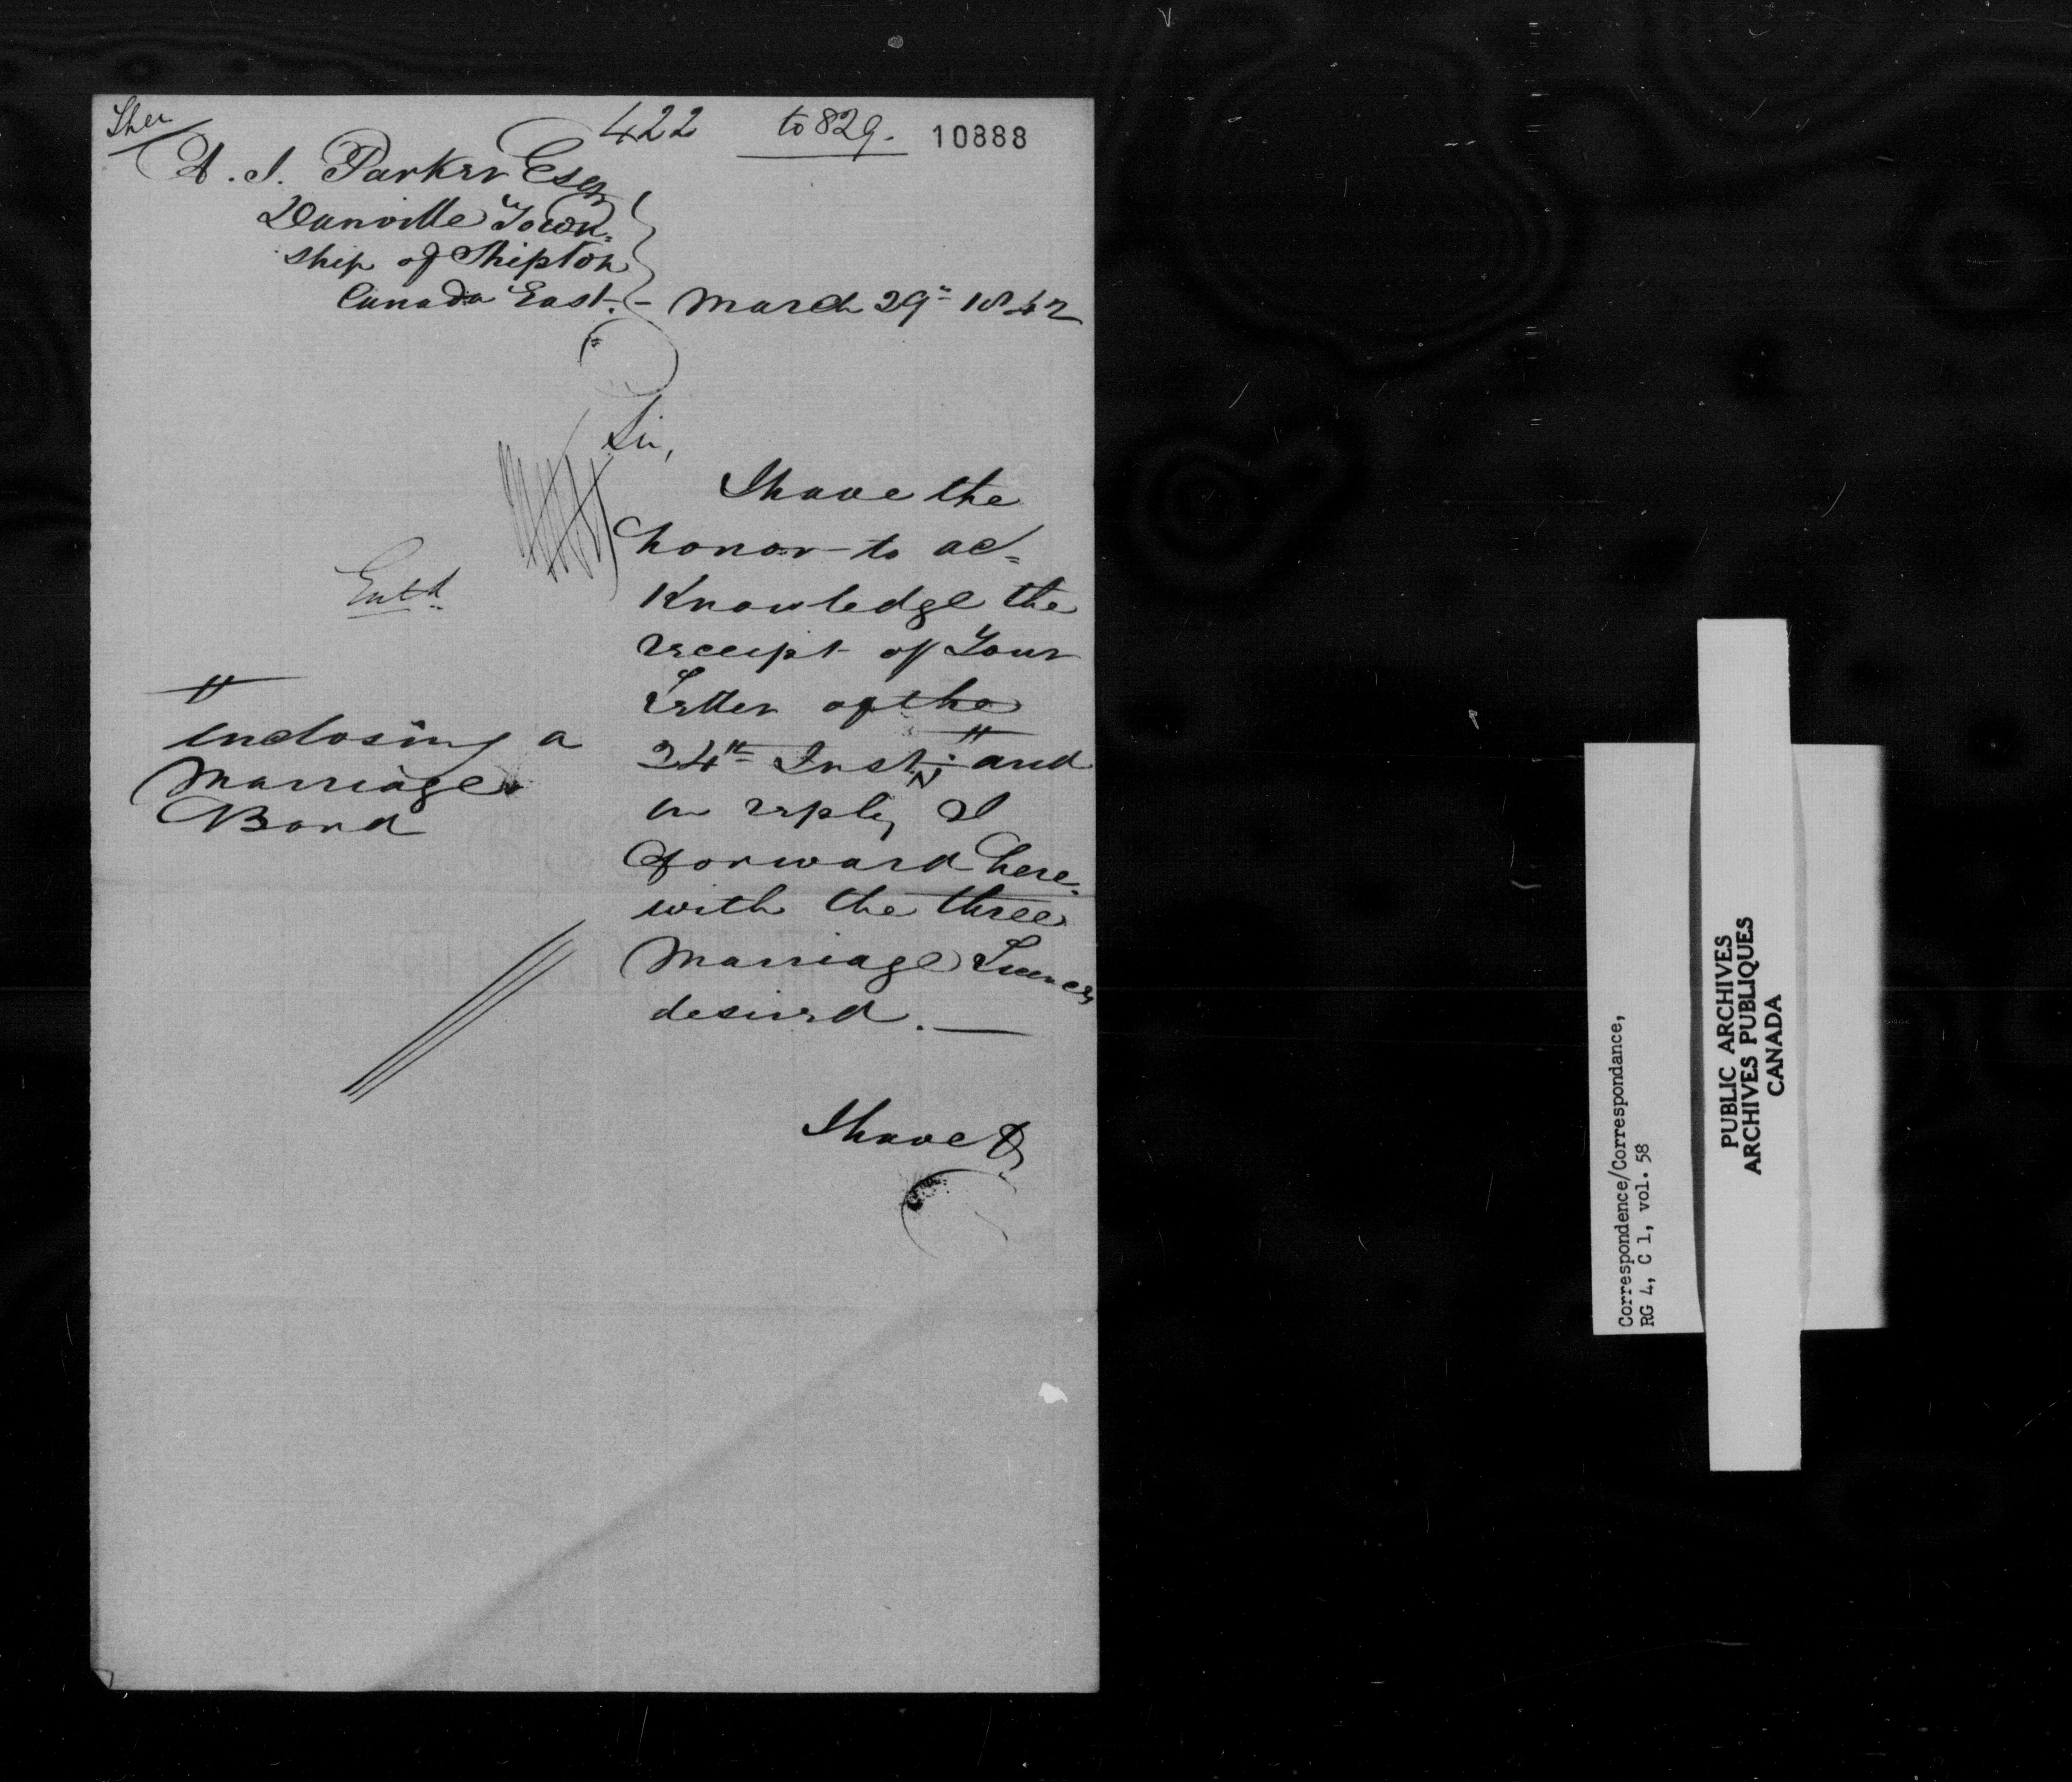 422 to 829. 10888
A. J. Parker Esqr
Danville Town=
ship of Shipton
Canada East. - March 29th 1842
Sir,
I have the
honor to ac=
knowledge the
receipt of Your
Letter of the
24th Inst; # and
in reply I
forward here=
with the three
Marriage Licences
desired. —
I have &
Entd
#
enclosing a
Marriage
Bond
Correspondence/Correspondance,
RG 4, C 1, vol. 58
PUBLIC ARCHIVES
ARCHIVES PUBLIQUES
CANADA